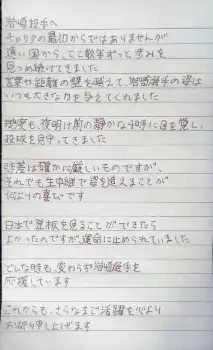 岩嵜投手へ
キャリアの最初からではありませんが
遠い国から、ここ数年ずっと歩みを
見つめ続けてきました
言葉や距離の壁を越えて、岩嵜選手の姿は
いつも大きな力を与えてくれました
何度も、夜明け前の静かな4時に目を覚し、
投球を見守ってきました
時差は確かに厳しいものですが、
それでも生中継で姿を追えることが
何よりの喜びです
日本で登板を見ることができたら
よかったのですが、運命に止められていました
どんな時も、変わらず岩嵜選手を
応援しています
これからも、さらなるご活躍を心より
お祈り申し上げます